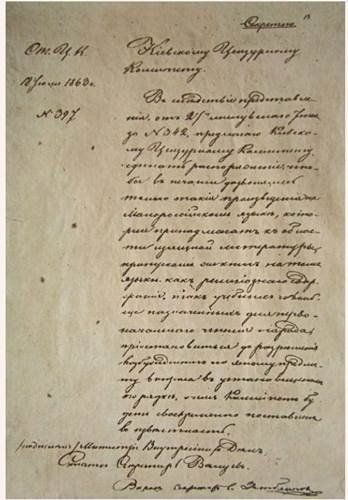 Секретно
От. Ц. К.
Июля 1863 г.
№ 397
Кіевскому Цензурному
Комитету.
Въ слѣдствіе представле-
нія, отъ 27 минувшаго Іюня
за № 342, предлагаю Кіевско-
му Цензурному Комитету
сдѣлать распоряженіе, что-
бы къ печати дозволялись
только такія произведенія на
Малороссійскомъ языкѣ, кото-
рыя принадлежатъ къ облас-
ти изящной литературы;
пропускомъ книгъ на томъ же
языкѣ какъ религіознаго содер-
жанія, такъ учебныхъ и вооб-
ще назначаемыхъ для перво-
начальнаго чтенія народа,
пріостановиться до разрѣшенія
возбужденнаго по этому предме-
ту вопроса въ установленномъ
порядкѣ, о чемъ Комитетъ бу-
детъ своевременно поставленъ
въ извѣстность.
(подписалъ) Министръ Внутреннихъ Дѣлъ,
Статсъ-Секретарь Валуевъ.